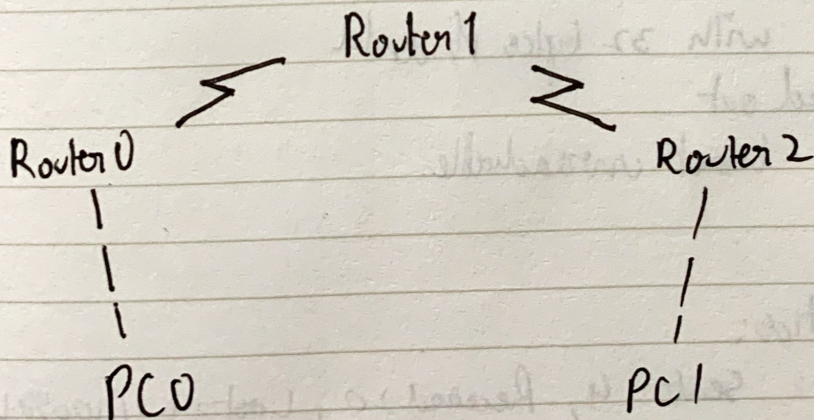 Router 1
Router 0
Router 2
PC0
PC1